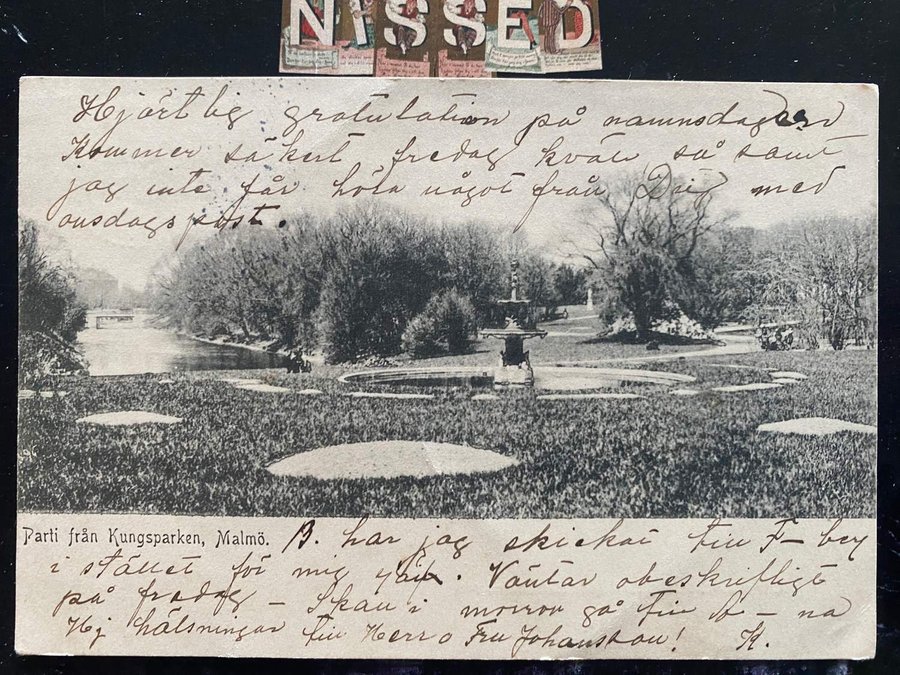 NISSED
Hjärtlig gratulation på namnsdagen
Kommer säkert fredag kväll så samt
jag inte får höra något från Dig med
onsdagspost.
Parti från Kungsparken, Malmö.
B. har jag skickat till F–by
i stället för mig själf. Väntar obeskrifligt
på fredag – Skall i morron gå till A – na
Hj hälsningar till Herr o Fru Johansson! K.